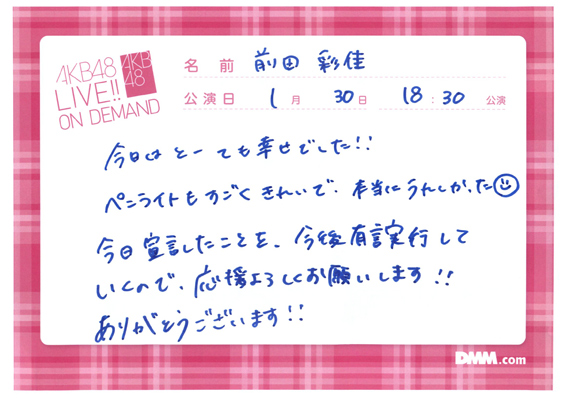 AKB48
LIVE!!
ON DEMAND
AKB
48
名前 前田 彩佳
公演日 1月 30日 18:30 公演
今日はとーても幸せでした!!
ペンライトもすごくきれいで、本当にうれしかった☺
今日宣言したことを、今後有言実行して
いくので、応援よろしくお願いします!!
ありがとうございます!!
DMM.com